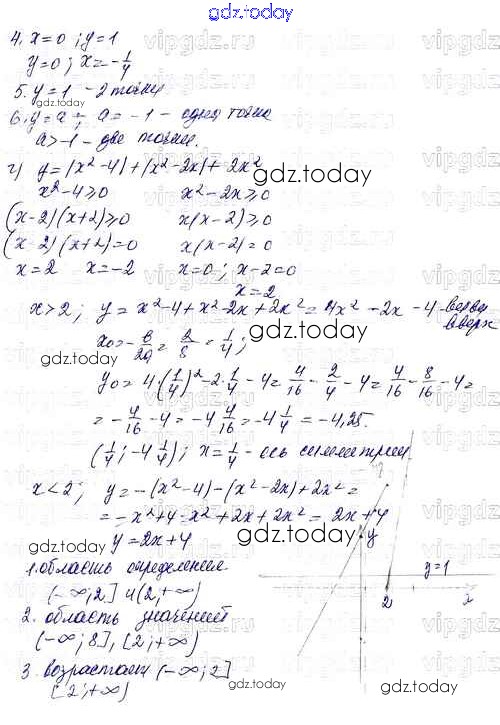 gdz.today
4. x=0; y=1
y=0; x=-1/4
5. y=1 - 2 точки
6. y=a; a=-1 - одна точка
a>-1 - две точки.
г) y=|x²-4|+|x²-2x|+2x²
gdz.today
x²-4≥0 x²-2x≥0
(x-2)(x+2)≥0 x(x-2)≥0
(x-2)(x+2)=0 x(x-2)=0
x=2 x=-2 x=0; x-2=0
x=2
x>2; y=x²-4+x²-2x+2x²=4x²-2x-4 - ветви
вверх
x₀=-b/2a=2/8=1/4;
gdz.today
y₀=4·(1/4)²-2·1/4-4=4/16-2/4-4=4/16-8/16-4=
=-4/16-4=-4 4/16=-4 1/4=-4,25.
(1/4; -4 1/4); x=1/4 - ось симметрии
x<2; y=-(x²-4)-(x²-2x)+2x²=
=-x²+4-x²+2x+2x²=2x+4
gdz.today
y=2x+4
y
1. область определения
y=1
(-∞;2] и (2;+∞)
2 x
2. область значений
(-∞;8], [2;+∞)
gdz.today
3. возрастает (-∞;2]
[2;+∞)
gdz.today
vipgdz.ru